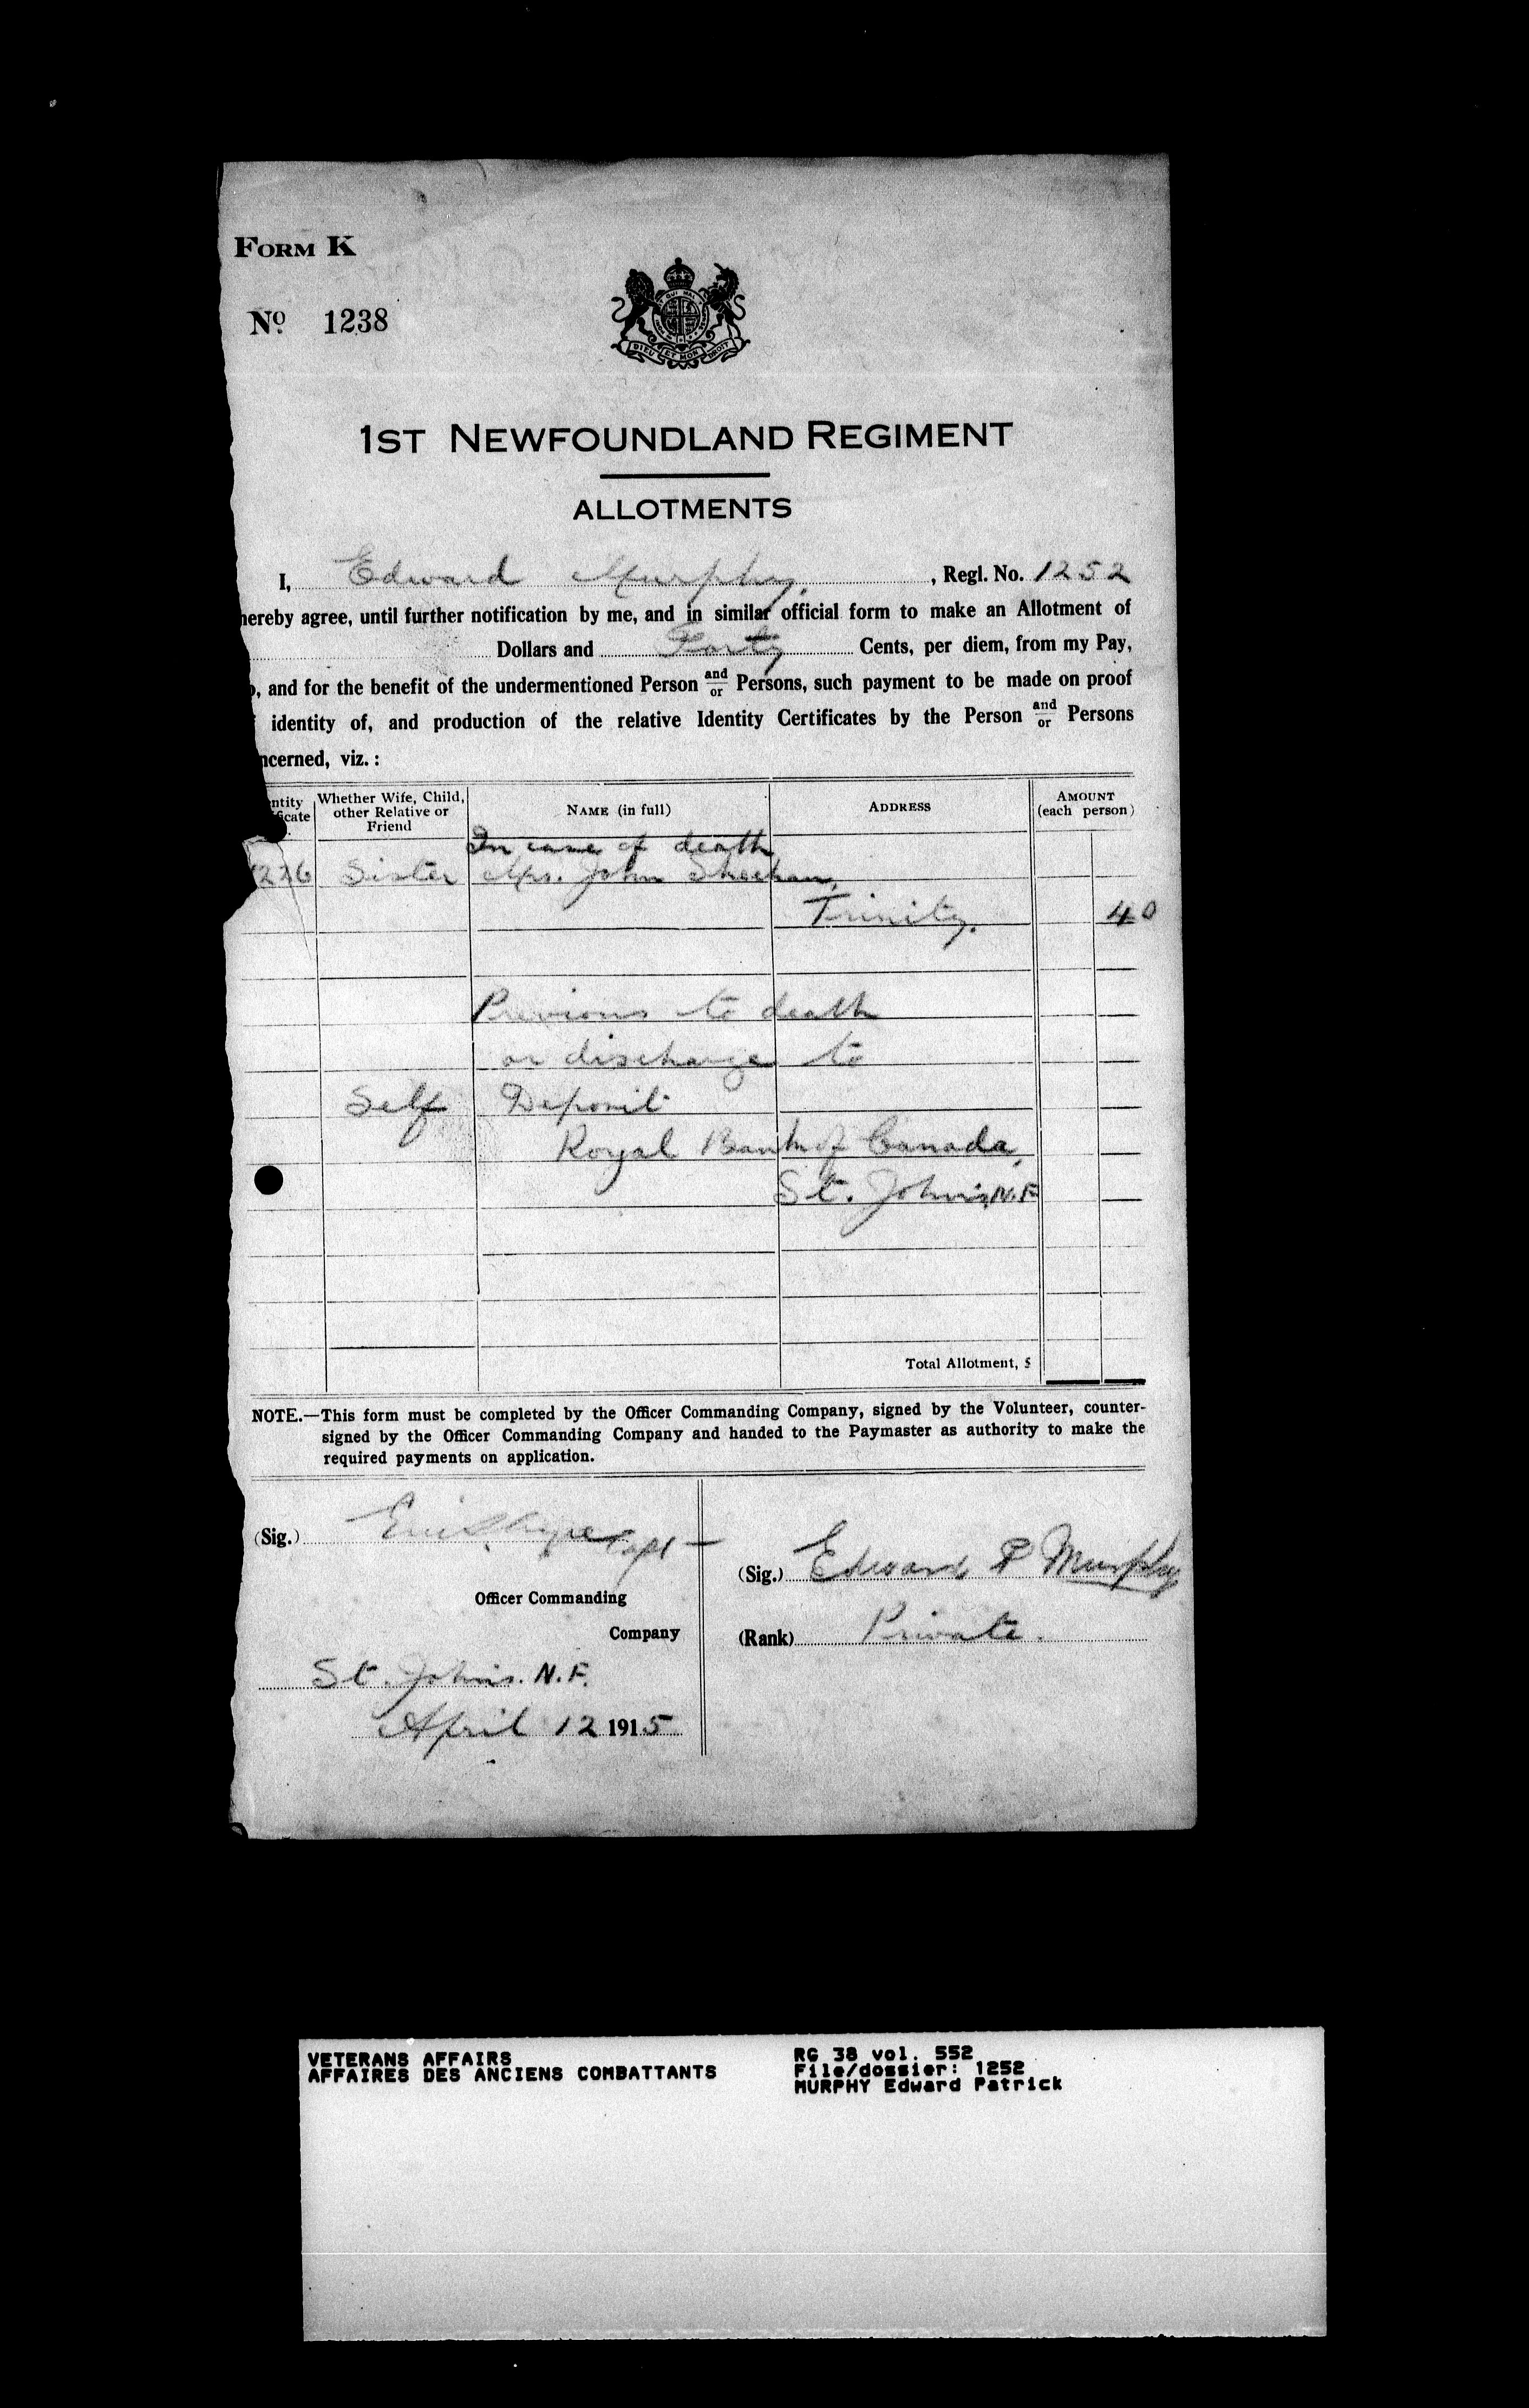 FORM K
No. 1238
DIEU ET MON DROIT
1ST NEWFOUNDLAND REGIMENT
ALLOTMENTS
I, Edward Murphy, Regl. No. 1252
hereby agree, until further notification by me, and in similar official form to make an Allotment of
Dollars and Forty Cents, per diem, from my Pay,
o, and for the benefit of the undermentioned Person and/or Persons, such payment to be made on proof
identity of, and production of the relative Identity Certificates by the Person and/or Persons
ncerned, viz. :
ntity ficate Whether Wife, Child, other Relative or Friend NAME (in full) ADDRESS AMOUNT (each person)
In case of death
226 Sister Mrs. John Sheehan,
Trinity. 40
Previous to death
or discharge to
Self Deposit
Royal Bank of Canada,
St. John's, N.F
Total Allotment, $
NOTE.—This form must be completed by the Officer Commanding Company, signed by the Volunteer, counter-
signed by the Officer Commanding Company and handed to the Paymaster as authority to make the
required payments on application.
(Sig.) Capt
(Sig.) Edward P Murphy
Officer Commanding
Company
(Rank) Private.
St. John's. N.F.
April 12 1915
VETERANS AFFAIRS
AFFAIRES DES ANCIENS COMBATTANTS
RG 38 vol. 552
File/dossier: 1252
MURPHY Edward Patrick